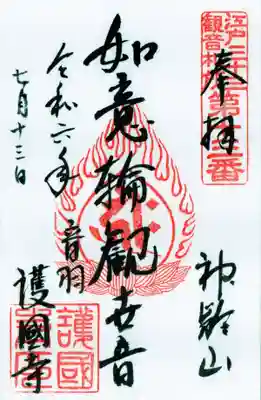 奉拝
江戸三十三
観音札所
第十三番
神齢山
如意輪観世音
音羽
護國寺
令和六年
七月十三日
護國